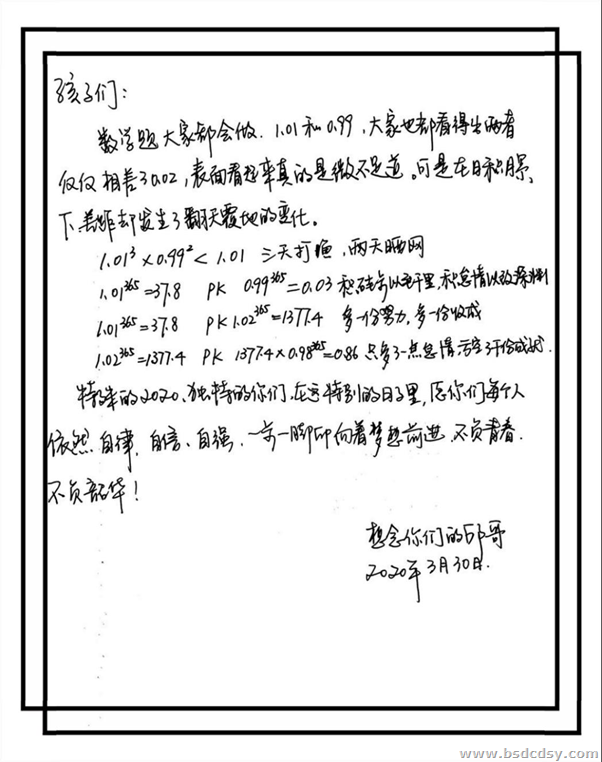 孩子们:
数学题大家都会做.1.01和0.99,大家也都看得出两者
仅仅相差了0.02,表面看起来真的是微不足道。可是在日积月累
下,差距却发生了翻天覆地的变化。
1.01³×0.99²<1.01 三天打渔,两天晒网
1.01³⁶⁵=37.8 PK 0.99³⁶⁵=0.03 积跬步以至千里,积怠惰以致深渊
1.01³⁶⁵=37.8 PK 1.02³⁶⁵=1377.4 多一份努力,多一份收成
1.02³⁶⁵=1377.4 PK 1377.4×0.98³⁶⁵=0.86 只多了一点怠惰,亏空了千份成就.
特殊的2020、独特的你们,在这特别的日子里,愿你们每个人
依然自律、自信、自强,一步一脚印向着梦想前进,不负青春,
不负韶华!
想念你们的邱哥
2020年3月30日.
www.bsdcdsy.com